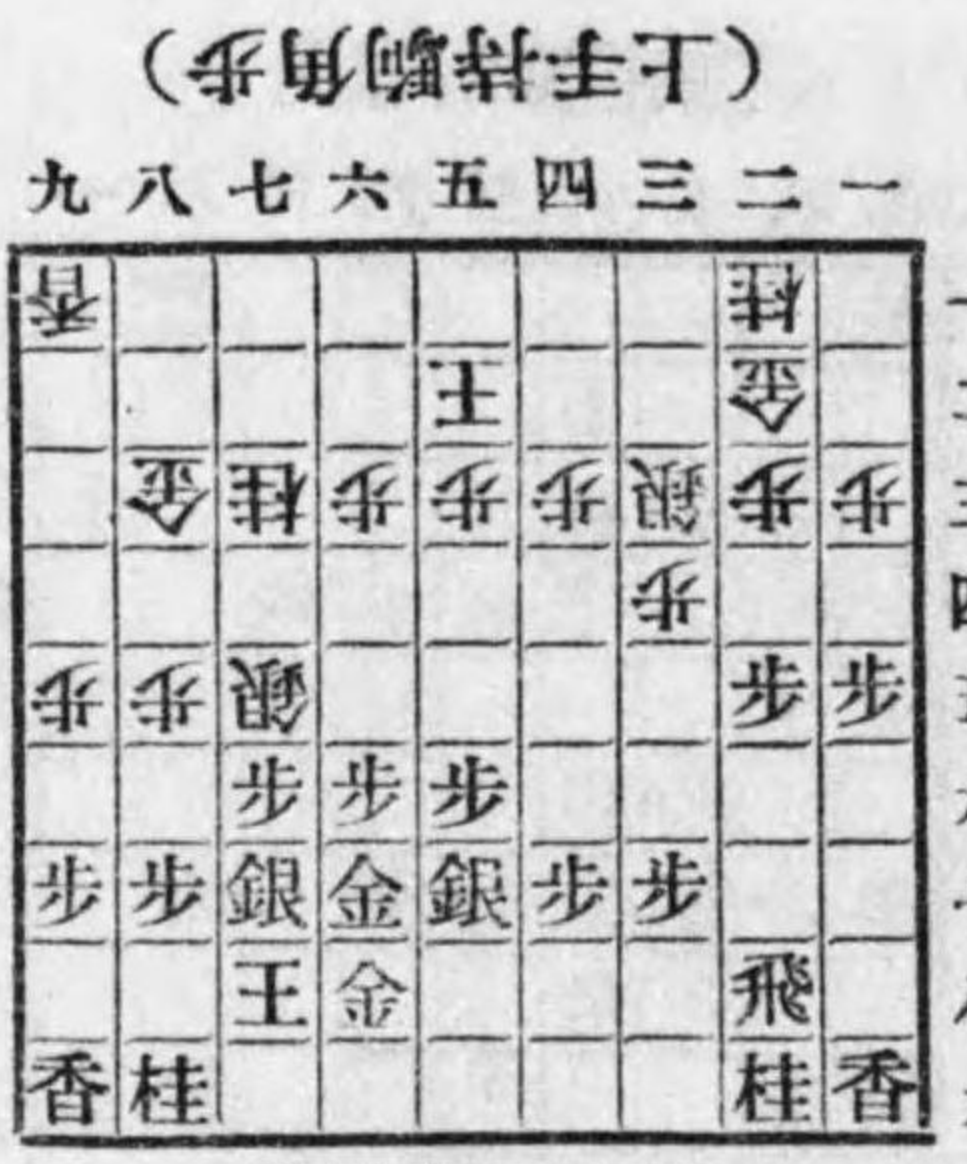 （上手持駒角歩）
九 八 七 六 五 四 三 二 一
香 桂 一
王 金
金 桂 歩 歩 歩 銀 歩 歩 三
歩 四
歩 歩 銀 歩 歩
歩 歩 歩
歩 歩 銀 金 銀 歩 歩
王 金 飛
香 桂 桂 香